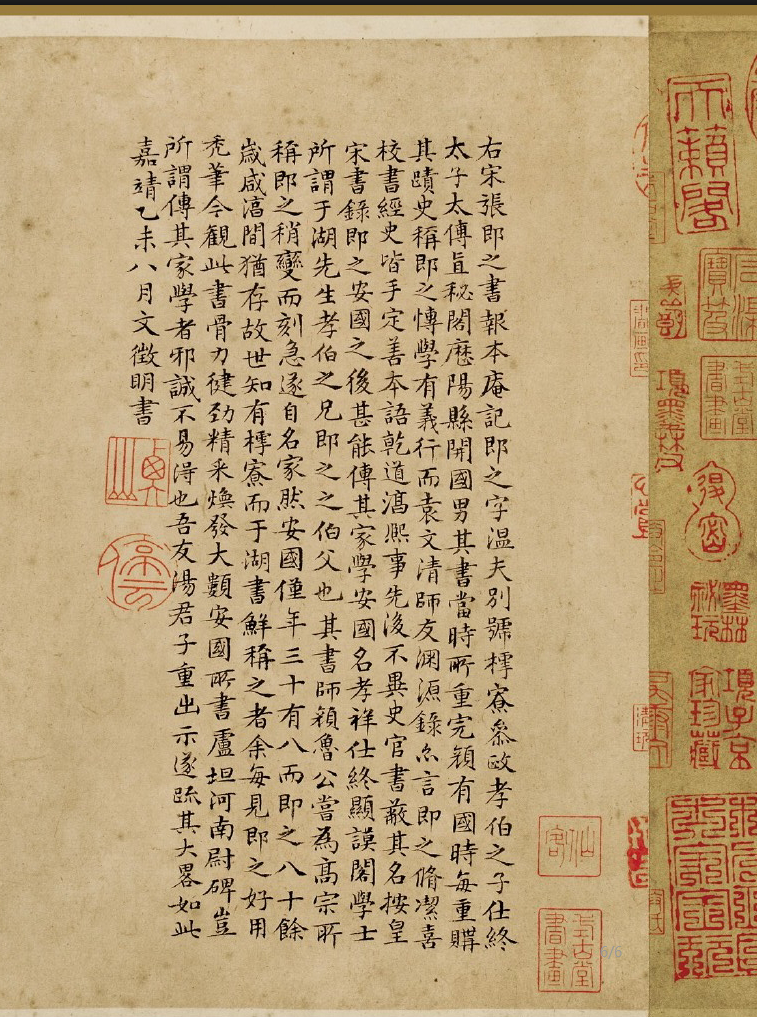 右宋張即之書報本庵記即之字溫夫別號樗寮叅政孝伯之子仕終
太子太傅直秘閣歷陽縣開國男其書當時所重完顏有國時每重購
其蹟史稱即之慱學有義行而袁文清師友淵源錄亦言即之脩潔喜
校書經史皆手定善本語乾道淳熙事先後不異史官書蔽其名按皇
宋書錄即之安國之後甚能傳其家學安國名孝祥仕終顯謨閣學士
所謂于湖先生孝伯之兄即之之伯父也其書師顏魯公嘗為高宗所
稱即之稍變而刻急遂自名家然安國僅年三十有八而即之八十餘
歲咸淳間猶存故世知有樗寮而于湖書鮮稱之者余每見即之好用
禿筆今觀此書骨力健勁精采煥發大類安國所書盧坦河南尉碑豈
所謂傳其家學者邪誠不易得也吾友湯君子重出示遂疏其大畧如此
嘉靖乙未八月文徵明書
天籟閣
項墨林父
項子京家珍藏
墨林祕玩
6/6